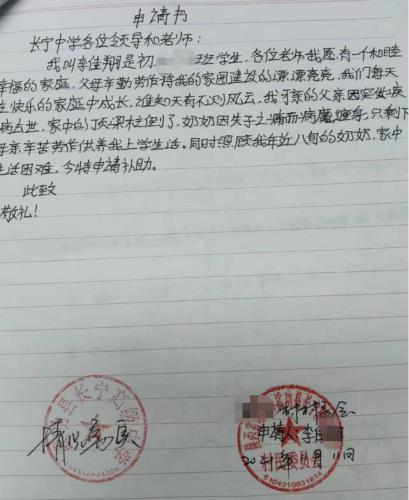 申请书
长宁中学各位领导和老师：
我叫李佳翔是初 班学生，各位老师我愿有一个和睦
幸福的家庭，父母辛勤劳作将我的家园建设的漂漂亮亮，我们每天
快乐的家庭中成长，谁知天有不测风云，我可亲的父亲因突发疾
病去世，家中的顶梁柱倒了，奶奶因失子之痛而病魔缠身，只剩下
母亲辛苦劳作供养我上学生活。同时照顾我年近八旬的奶奶，家中
生活困难，今特申请补助。
此致
敬礼！
情况属实
申请人李
2021年11月11日
村民委员会
6104310031814